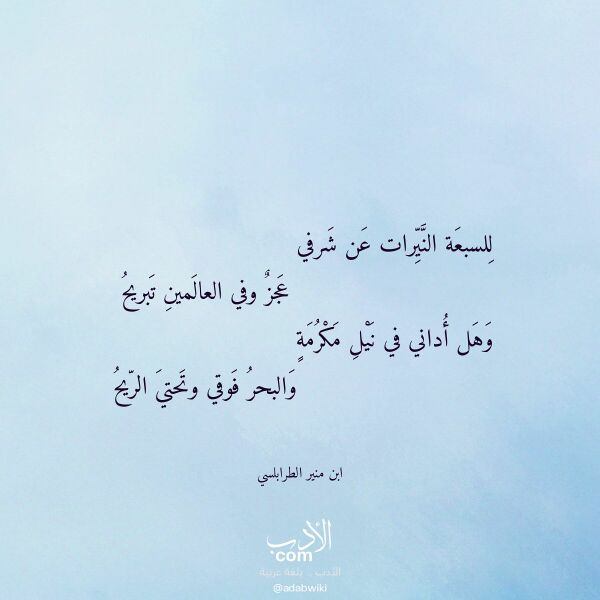 لِلسبعَة النَّيِّرات عَن شَرفي
عَجزٌ وفي العالَمينِ تَبريحُ
وَهَل أُداني في نَيْلِ مَكْرُمَةٍ
وَالبحرُ فَوقي وتَحتيَ الرّيحُ
ابن منير الطرابلسي
الأدب
com
الأدب .. بلغة عربية
@adabwiki